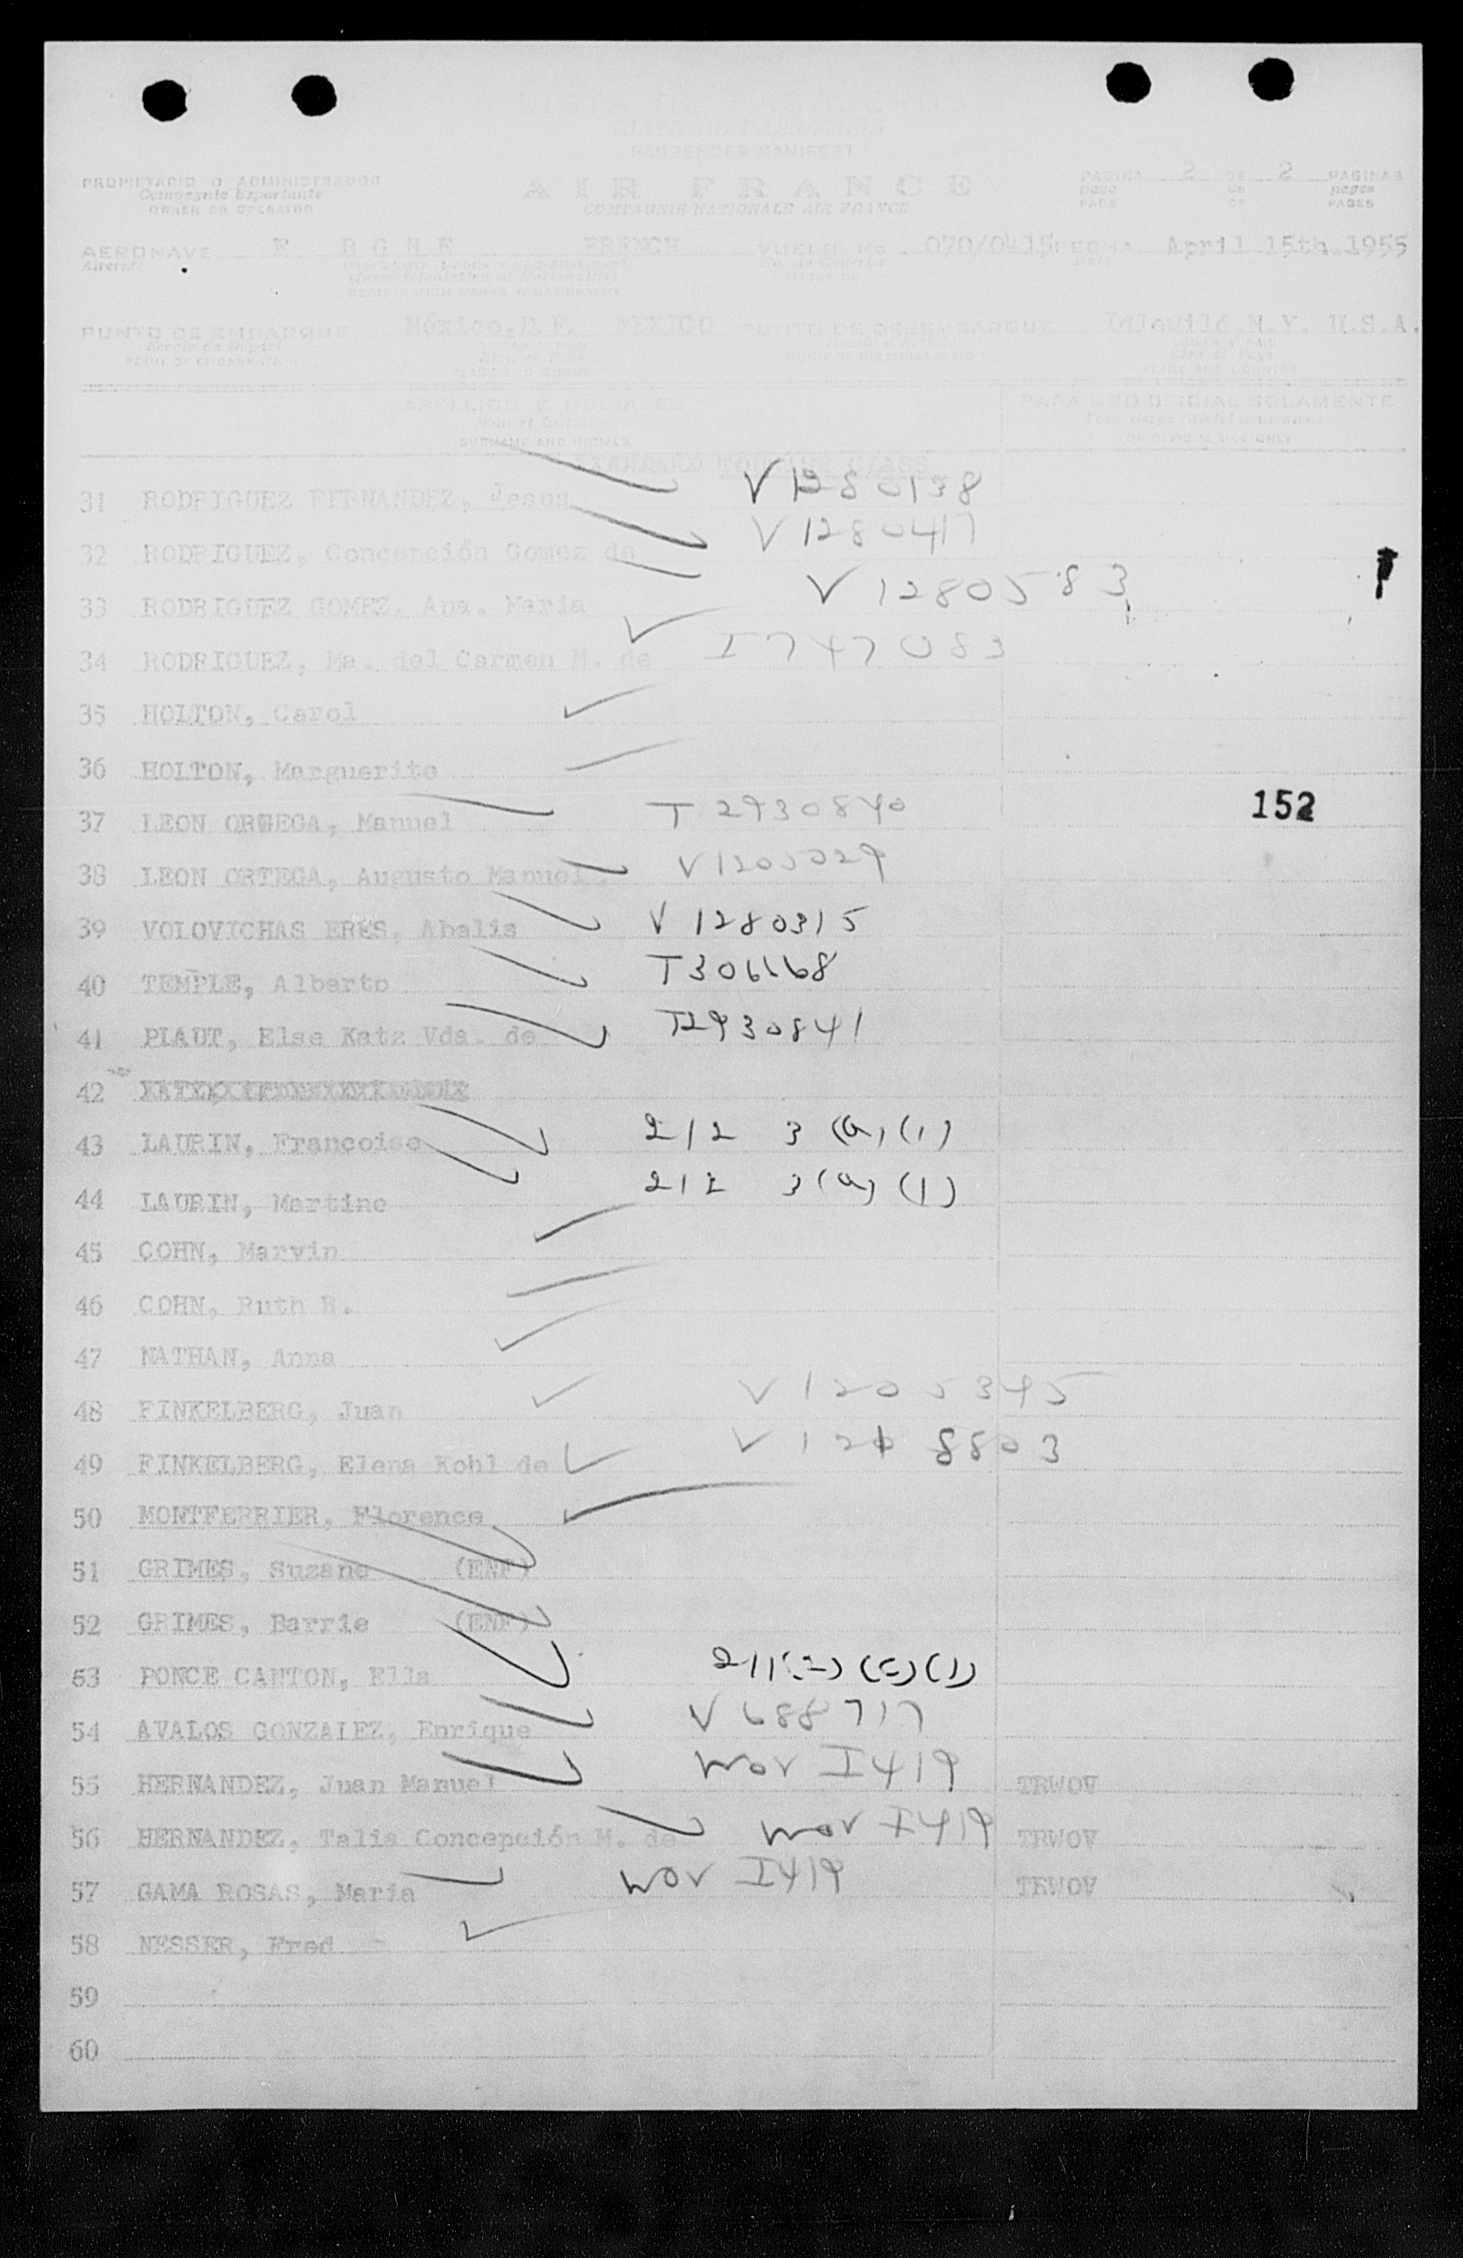 PASSENGER MANIFEST
PROPIETARIO O ADMINISTRADOR
Compagnie Exportante
OWNER OR OPERATOR
AIR FRANCE
COMPAGNIE NATIONALE AIR FRANCE
PAGINA 2 DE 2 PAGINAS
page de pages
PAGE OF PAGES
AERONAVE F BGNE FRENCH VUELO No 070/0415 FECHA April 15th.1955
Aircraft
PUNTO DE EMBARQUE México,D.F. MEXICO PUNTO DE DESEMBARQUE Idlewild N.Y. U.S.A.
APELLIDO E INICIALES PARA USO OFICIAL SOLAMENTE
SURNAME AND INITIALS FOR OFFICIAL USE ONLY
STANDARD TOURIST CLASS
31 RODRIGUEZ FERNANDEZ, Jesus V1280138
32 RODRIGUEZ, Concepción Gomez de V1280417
33 RODRIGUEZ GOMEZ, Ana. Maria V1280583
34 RODRIGUEZ, Ma. del Carmen M. de I747083
35 HOLTON, Carol
36 HOLTON, Marguerite
37 LEON ORTEGA, Manuel T2930840
38 LEON ORTEGA, Augusto Manuel
152
39 VOLOVICHAS ERES, Abalis V1280315
40 TEMPLE, Alberto T306668
41 PLAUT, Else Katz Vda. de T2930841
42
43 LAURIN, Francoise 212 3(a)(1)
44 LAURIN, Martine 212 3(a)(1)
45 COHN, Marvin
46 COHN, Ruth R.
47 NATHAN, Anna
48 FINKELBERG, Juan V1205345
49 FINKELBERG, Elena Kohl de
50 MONTFERRIER, Florence
51 GRIMES, Suzane (ENF)
52 GRIMES, Barrie (ENF)
53 PONCE CANTON, Ella
54 AVALOS GONZALEZ, Enrique V688717
55 HERNANDEZ, Juan Manuel WOV I419 TRWOV
56 HERNANDEZ, Talia Concepción M. de WOV I419 TRWOV
57 GAMA ROSAS, Maria WOV I419 TRWOV
58 NESSER, Fred
59
60